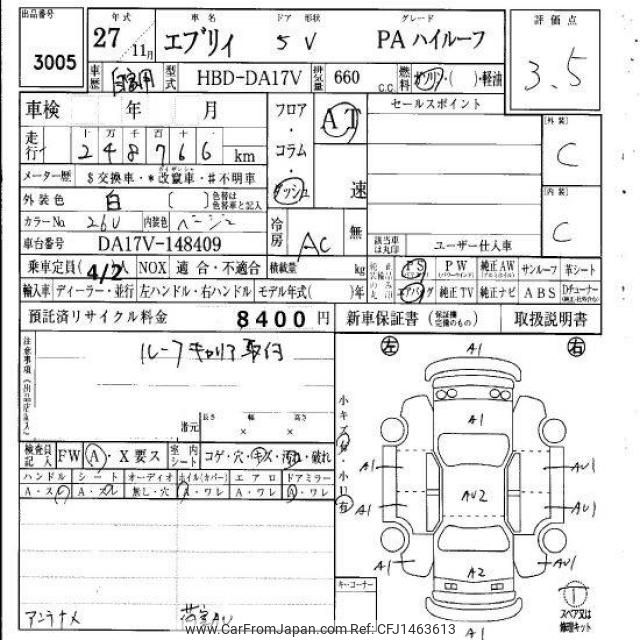 出品番号 年式 車名 ドア 形状 グレード 評価点
3005 27 11月 エブリィ 5 V PA ハイルーフ 3.5
車歴 自家用 型式 HBD-DA17V 排気量 660 C.C. 燃料 ガソリン・( )・軽油
車検 年 月 フロア・コラム・ダッシュ AT 速 セールスポイント 【外装】 C
走行 十 万 千 百 十 一
2 4 8 7 6 6 km
メーター歴 $交換車・*改竄車・#不明車 【内装】 C
外装色 白 ( ) 色替は色替車と記入
カラーNo 26U 内装色 ベージュ 冷房 AC 無
車台番号 DA17V-148409 該当車は丸印 ユーザー仕入車
乗車定員 ( 4/2 )人 NOX 適合・不適合 積載量 kg PS PW 純正AW サンルーフ 革シート
輸入車 ディーラー・並行 左ハンドル・右ハンドル モデル年式( )年 エアバッグ 純正TV 純正ナビ ABS Dチューナー
預託済リサイクル料金 8400 円 新車保証書 (保証機完備のもの) 取扱説明書
注意事項(出品店記入) ルーフキャリア取付
諸元 長さ 幅 高さ
× ×
左 A1 右
小キズ有 小凹有
検査員記入 FW A・X要ス 室内シート コゲ・穴・キズ・汚れ・破れ
ハンドル シート オーディオ ホイル(カバー) エアロ ドアミラー
A・スレ A・スレ 無し・穴 A・ワレ A・ワレ A・ワレ
A1
A1 AU1
AU2
A1 AU1
A1 A2 A1
A1
キーコーナー
スペア又は修理キット
アンテナメ 荷室AU
www.CarFromJapan.com Ref: CFJ1463613